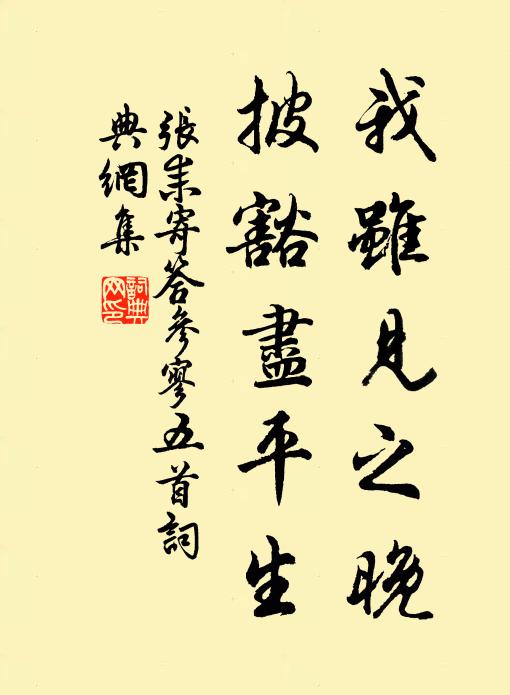 我雖見之晚
披豁盡平生
張耒寄答參寥五首詞
典網集
詞典
网印